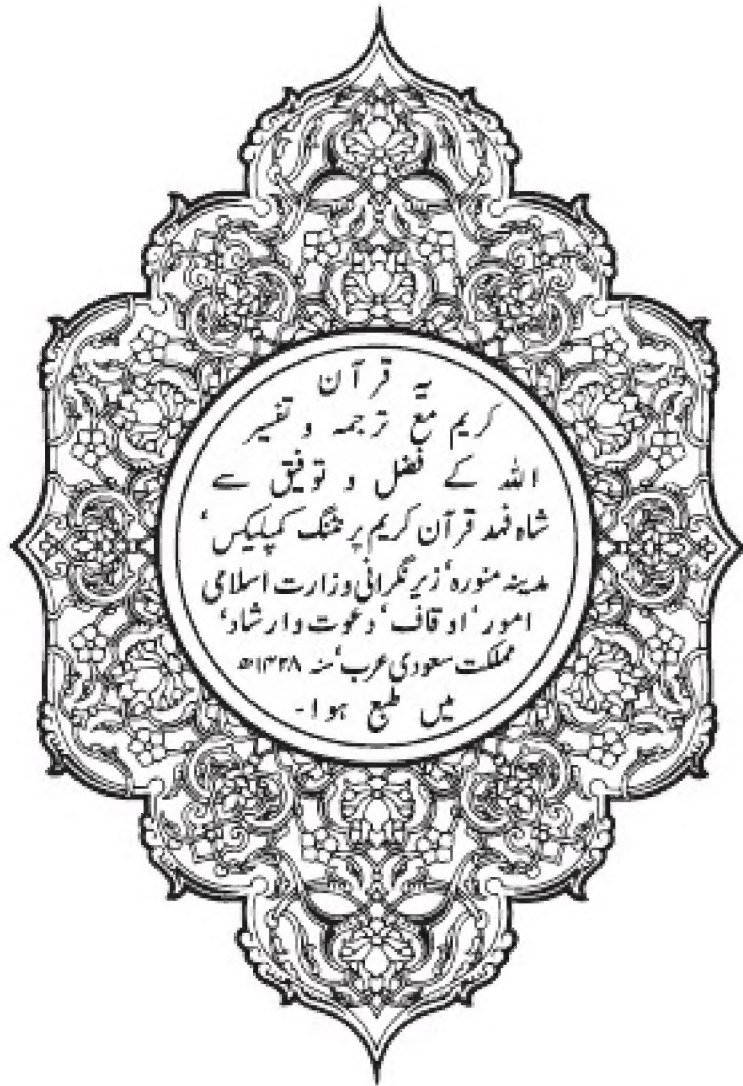 یہ قرآن
کریم مع ترجمہ و تفسیر
اللہ کے فضل و توفیق سے
شاہ فہد قرآن کریم پرنٹنگ کمپلیکس‘
مدینہ منورہ‘ زیر نگرانی وزارت اسلامی
امور‘ اوقاف‘ دعوت و ارشاد‘
مملکت سعودی عرب‘ سنہ ۱۴۳۸ھ
میں طبع ہوا۔